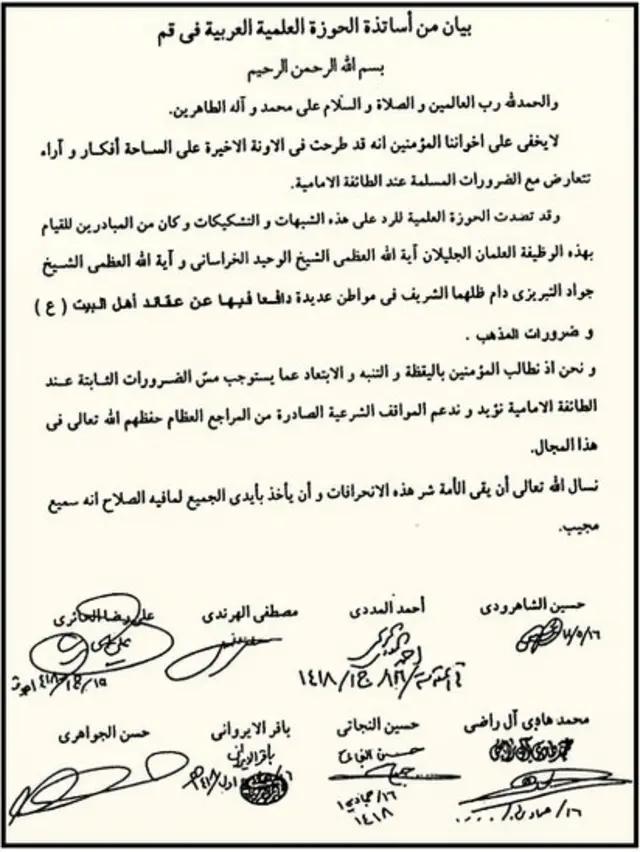 بيان من أساتذة الحوزة العلمية العربية فى قم
بسم الله الرحمن الرحيم
والحمدلله رب العالمين و الصلاة و السّلام على محمد و آله الطاهرين.
لايخفى على اخواننا المؤمنين انه قد طرحت فى الاونة الاخيرة على الساحة أفكار و آراء
تتعارض مع الضرورات المسلمة عند الطائفة الامامية.
و قد تصدت الحوزة العلمية للرد على هذه الشبهات و التشكيكات و كان من المبادرين للقيام
بهذه الوظيفة العلمان الجليلان آية الله العظمى الشيخ الوحيد الخراسانى و آية الله العظمى الشيخ
جواد التبريزى دام ظلهما الشريف فى مواطن عديدة دافعا فيها عن عقائد أهل البيت ( ع )
و ضرورات المذهب .
و نحن اذ نطالب المؤمنين باليقظة و التنبه و الابتعاد عما يستوجب مسّ الضرورات الثابتة عند
الطائفة الامامية نؤيد و ندعم المواقف الشرعية الصادرة من المراجع العظام حفظهم الله تعالى فى
هذا المجال.
نسال الله تعالى أن يقى الأمة شر هذه الانحرافات و أن يأخذ بأيدى الجميع لمافيه الصلاح انه سميع
مجيب.
حسين الشاهرودى أحمد المددى مصطفى الهرندى على رضا الحائرى
محمد هادى آل راضى حسين النجاتى باقر الايروانى حسن الجواهرى
حسين النجاتي
باقر الايرواني
١٦/ جمادي ١
١٤١٨